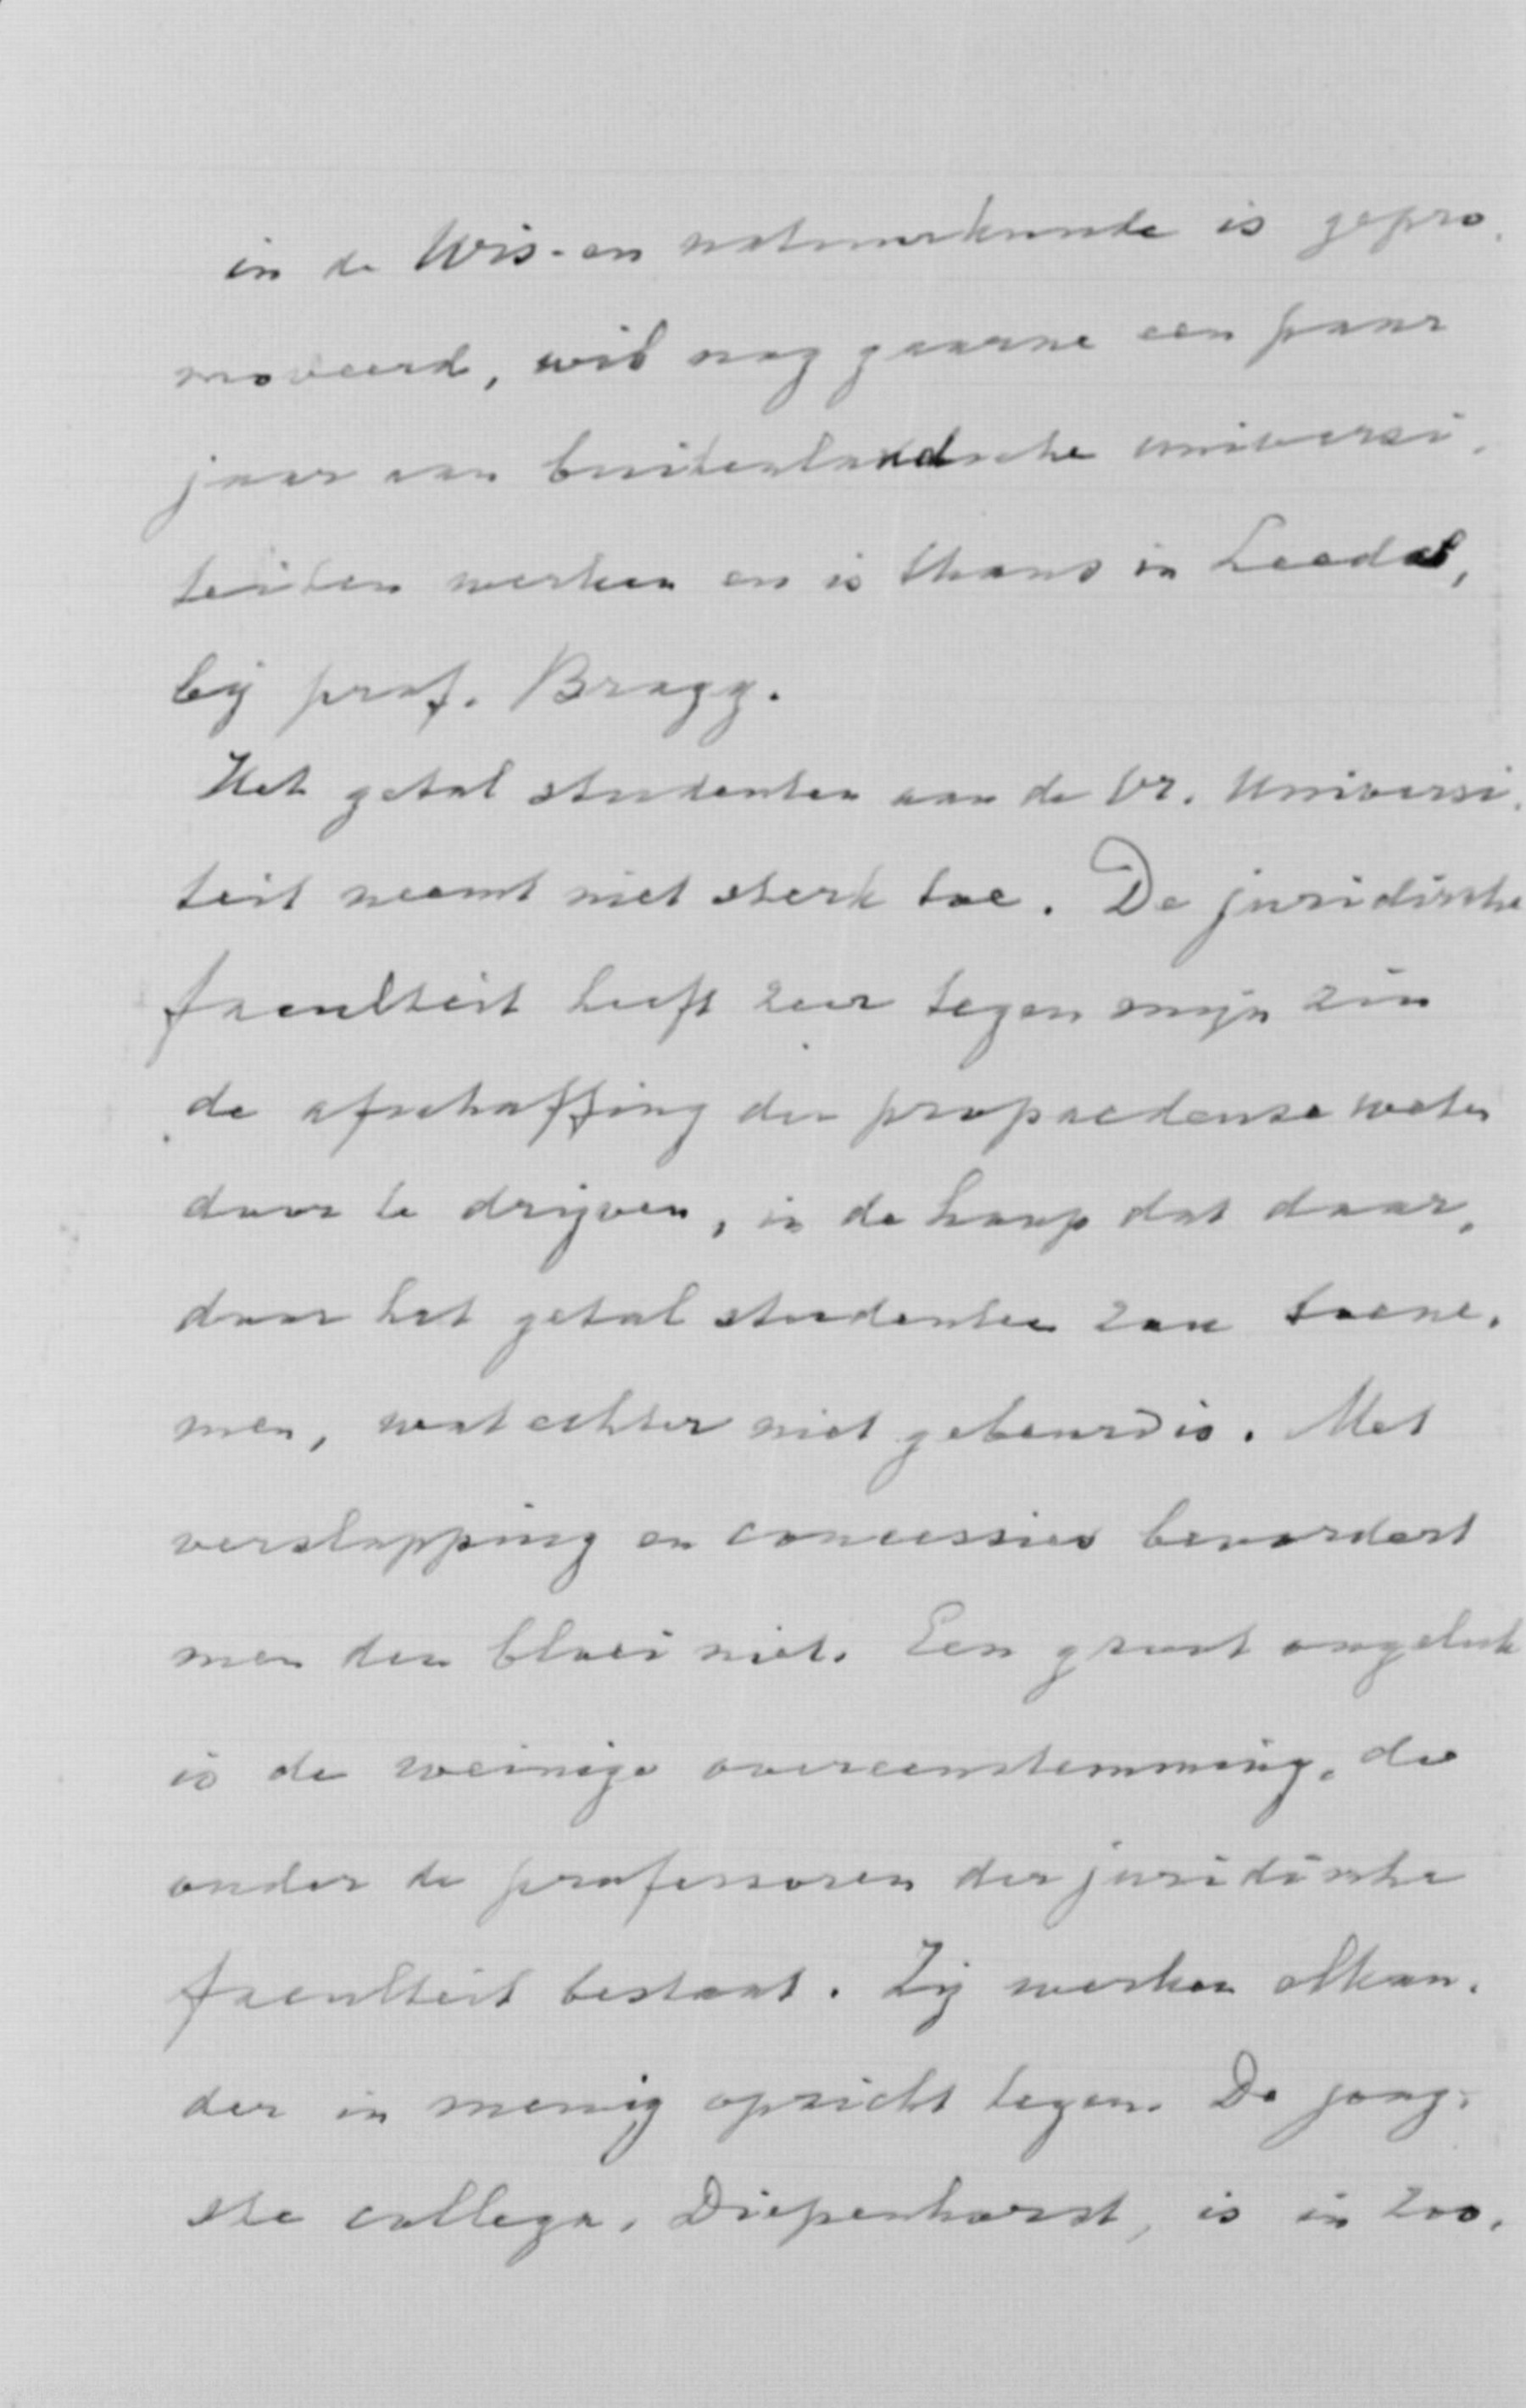 in de Wis- en natuurkunde is gepro-
moveerd, wil nog gaarne een paar
jaar aan buitenlandsche universi-
teiten werken en is thans in Leeds,
bij prof. Bragg.
Het getal studenten aan de Vr. Universi-
teit neemt niet sterk toe. De juridische
faculteit heeft zeer tegen mijn zin
de afschaffing der propaedeuse weten
door te drijven, in de hoop dat daar-
door het getal studenten zou toene-
men, wat echter niet gebeurd is. Met
verslapping en concessies bevordert
men den bloei niet. Een groot ongeluk
is de weinige overeenstemming, die
onder de professoren der juridische
faculteit bestaat. Zij werken elkan-
der in menig opzicht tegen. De jong-
ste collega, Diepenhorst, is in zoo-